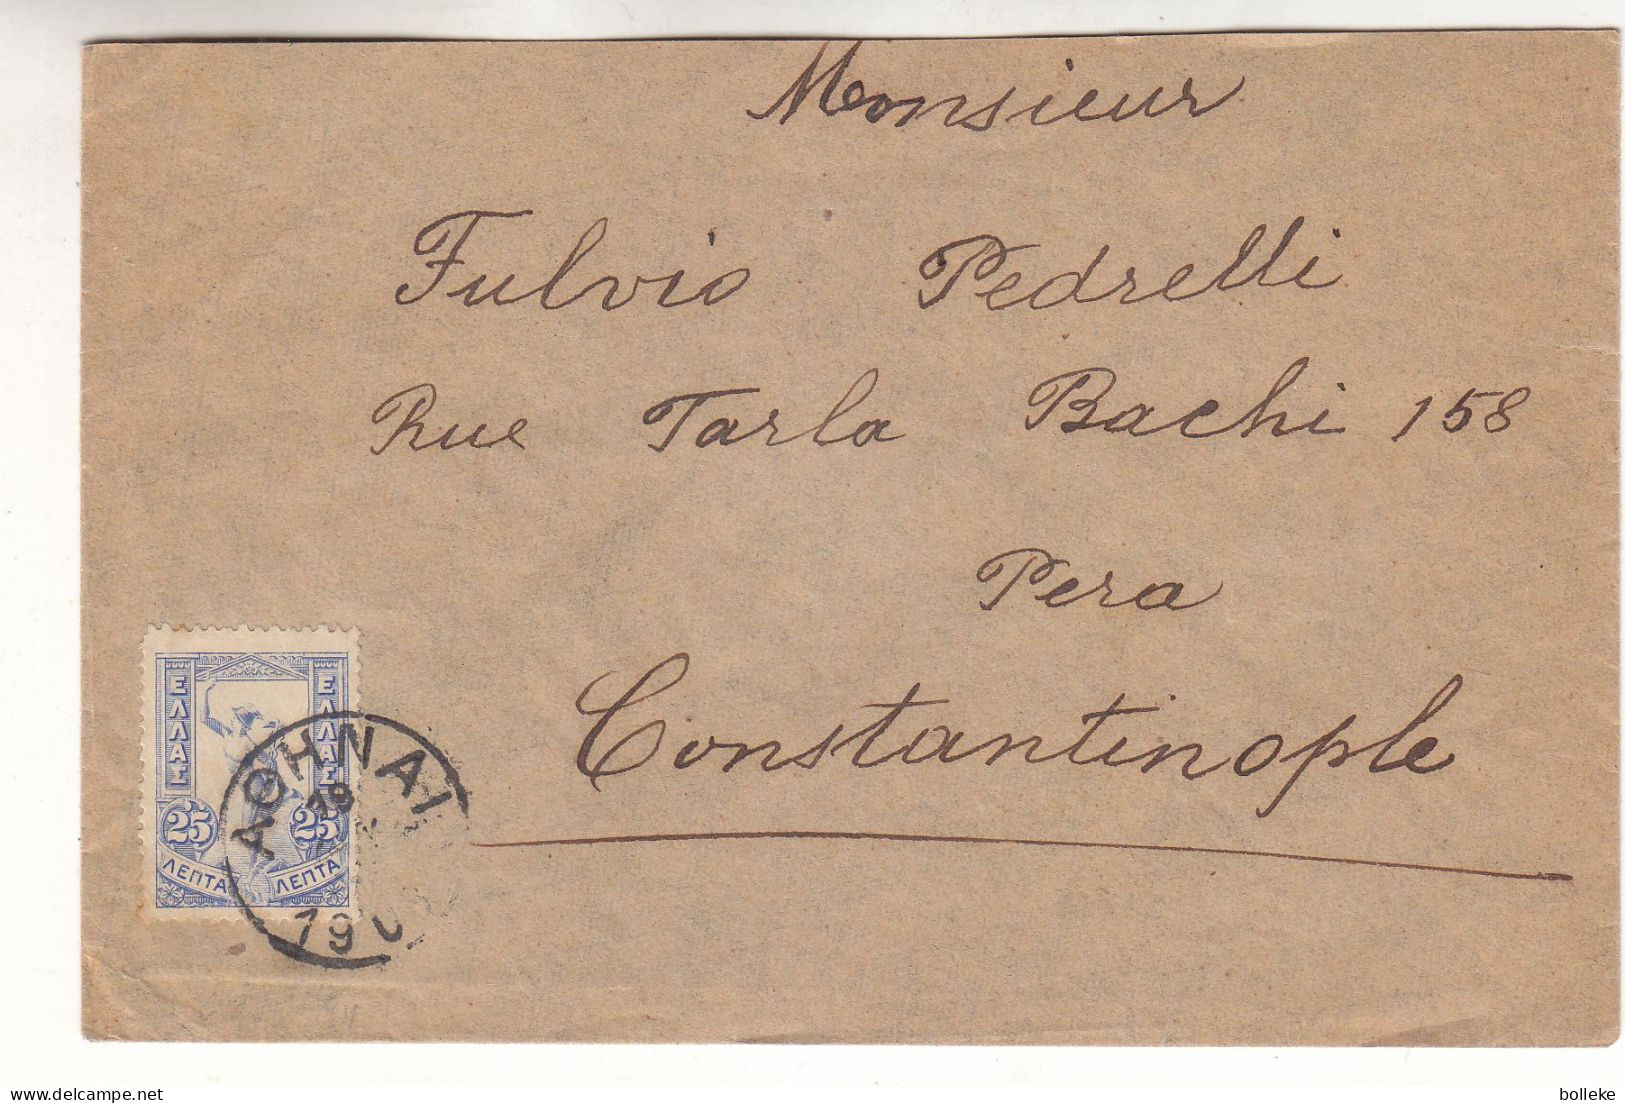 Monsieur
Fulvio Pedrelli
Rue Tarla Bachi 158
Pera
Constantinople
ΕΛΛΑΣ ΕΛΛΑΣ
25 25
ΛΕΠΤΑ ΛΕΠΤΑ
ΑΘΗΝΑΙ
19
bolleke